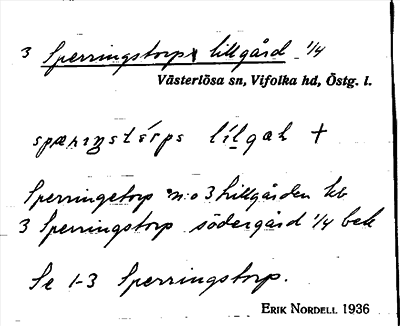 3 Sperringstorps lillgård 1/4
Västerlösa sn, Vifolka hd, Östg. l.
spærɪŋstórps lílgaḷ +
Sperringetorp n:o 3 Lillgården kb
3 Sperringstorp södergård 1/4 bek
Se 1-3 Sperringstorp.
ERIK NORDELL 1936